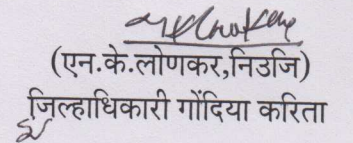 (एन.के.लोणकर,निउजि)
जिल्हाधिकारी गोंदिया करिता